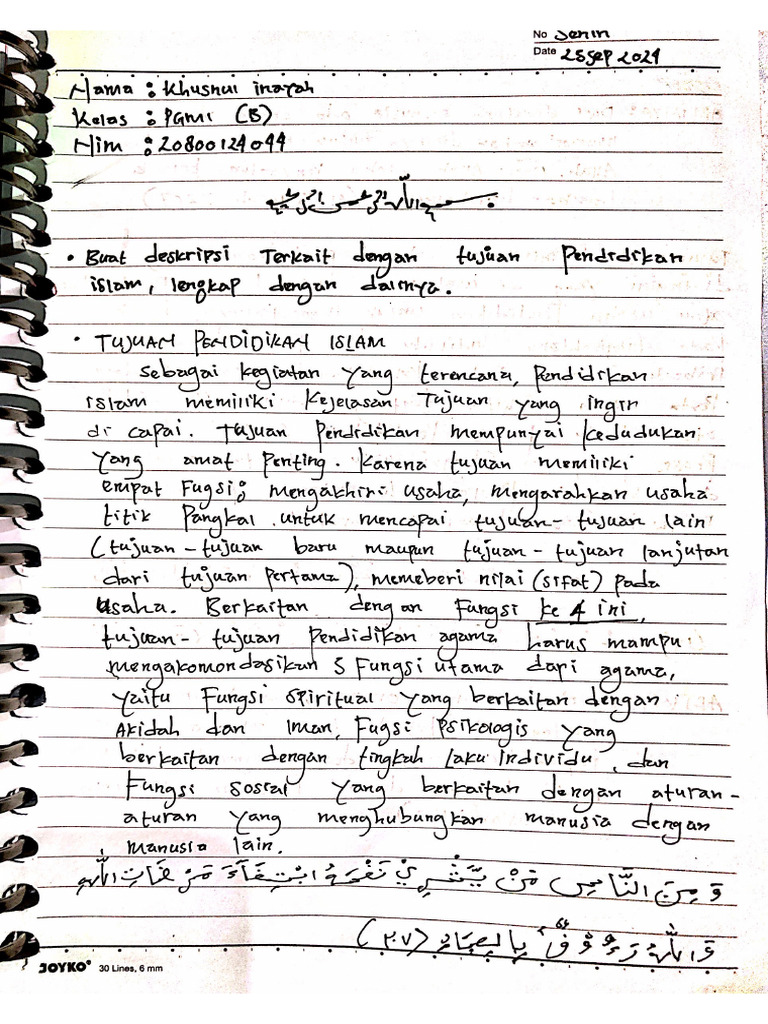 No Senin
Date 25 Sep 2024
Nama : Khusnul inayah
Kelas : PGMI (B)
Nim : 20800124044
بسم الله الرحمن الرحيم
• Buat deskripsi Terkait dengan tujuan Pendidikan
islam, lengkap dengan dalilnya.
• TUJUAN PENDIDIKAN ISLAM
Sebagai kegiatan yang terencana, Pendidikan
islam memiliki Kejelasan Tujuan yang ingin
di capai. Tujuan Pendidikan mempunyai kedudukan
yang amat penting. Karena tujuan memiliki
empat Fugsi: mengakhiri usaha, mengarahkan usaha
titik Pangkal untuk mencapai tujuan-tujuan lain
(tujuan-tujuan baru maupun tujuan-tujuan lanjutan
dari tujuan pertama), memeberi nilai (sifat) pada
usaha. Berkaitan dengan Fungsi ke 4 ini,
tujuan-tujuan Pendidikan agama harus mampu
mengakomondasikan 3 Fungsi utama dari agama,
yaitu Fungsi spiritual yang berkaitan dengan
Akidah dan Iman, Fugsi Psikologis yang
berkaitan dengan tingkah laku individu, dan
Fungsi sosial yang berkaitan dengan aturan-
aturan yang menghubungkan manusia dengan
manusia lain.
وَمِنَ النَّاسِ مَنْ يَّشْرِيْ نَفْسَهُ ابْتِغَآءَ مَرْضَاتِ اللّٰهِ
وَاللّٰهُ رَءُوْفٌ بِالْعِبَادِ (٢٠٧)
JOYKO® 30 Lines, 6 mm